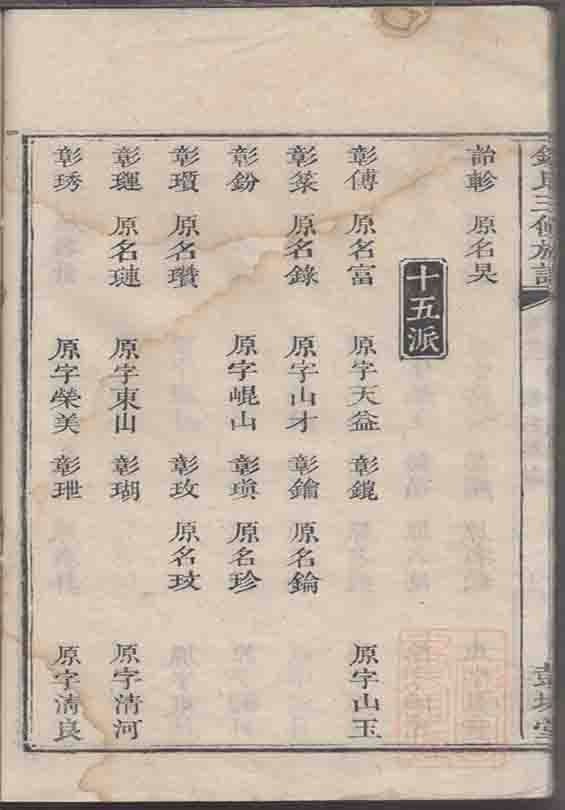 三修族譜
詒軫 原名昊
十五派
彰傅 原名富 原字天益 彰鎞 原字山玉
彰築 原名錄 原字山才 彰鑰 原名錀
彰鈖 原字崐山 彰瑱 原名珍
彰瓆 原名瓚 彰玫 原名玟
彰璭 原名璉 原字東山 彰瑚 原字清河
彰琇 原字榮美 彰玴 原字清良